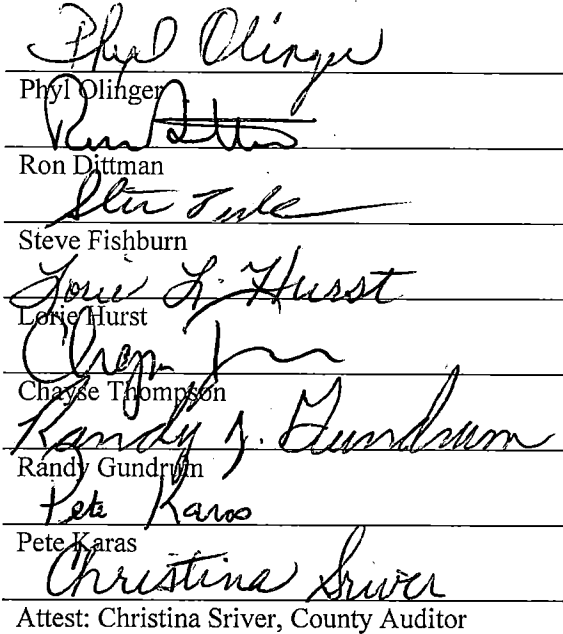 Phyl Olinger
Phyl Olinger
Ron Dittman
Steve Fishburn
Lorie L. Hurst
Lorie Hurst
Chayse Thompson
Randy J. Gundrum
Randy Gundrum
Pete Karas
Pete Karas
Christina Sriver
Attest: Christina Sriver, County Auditor